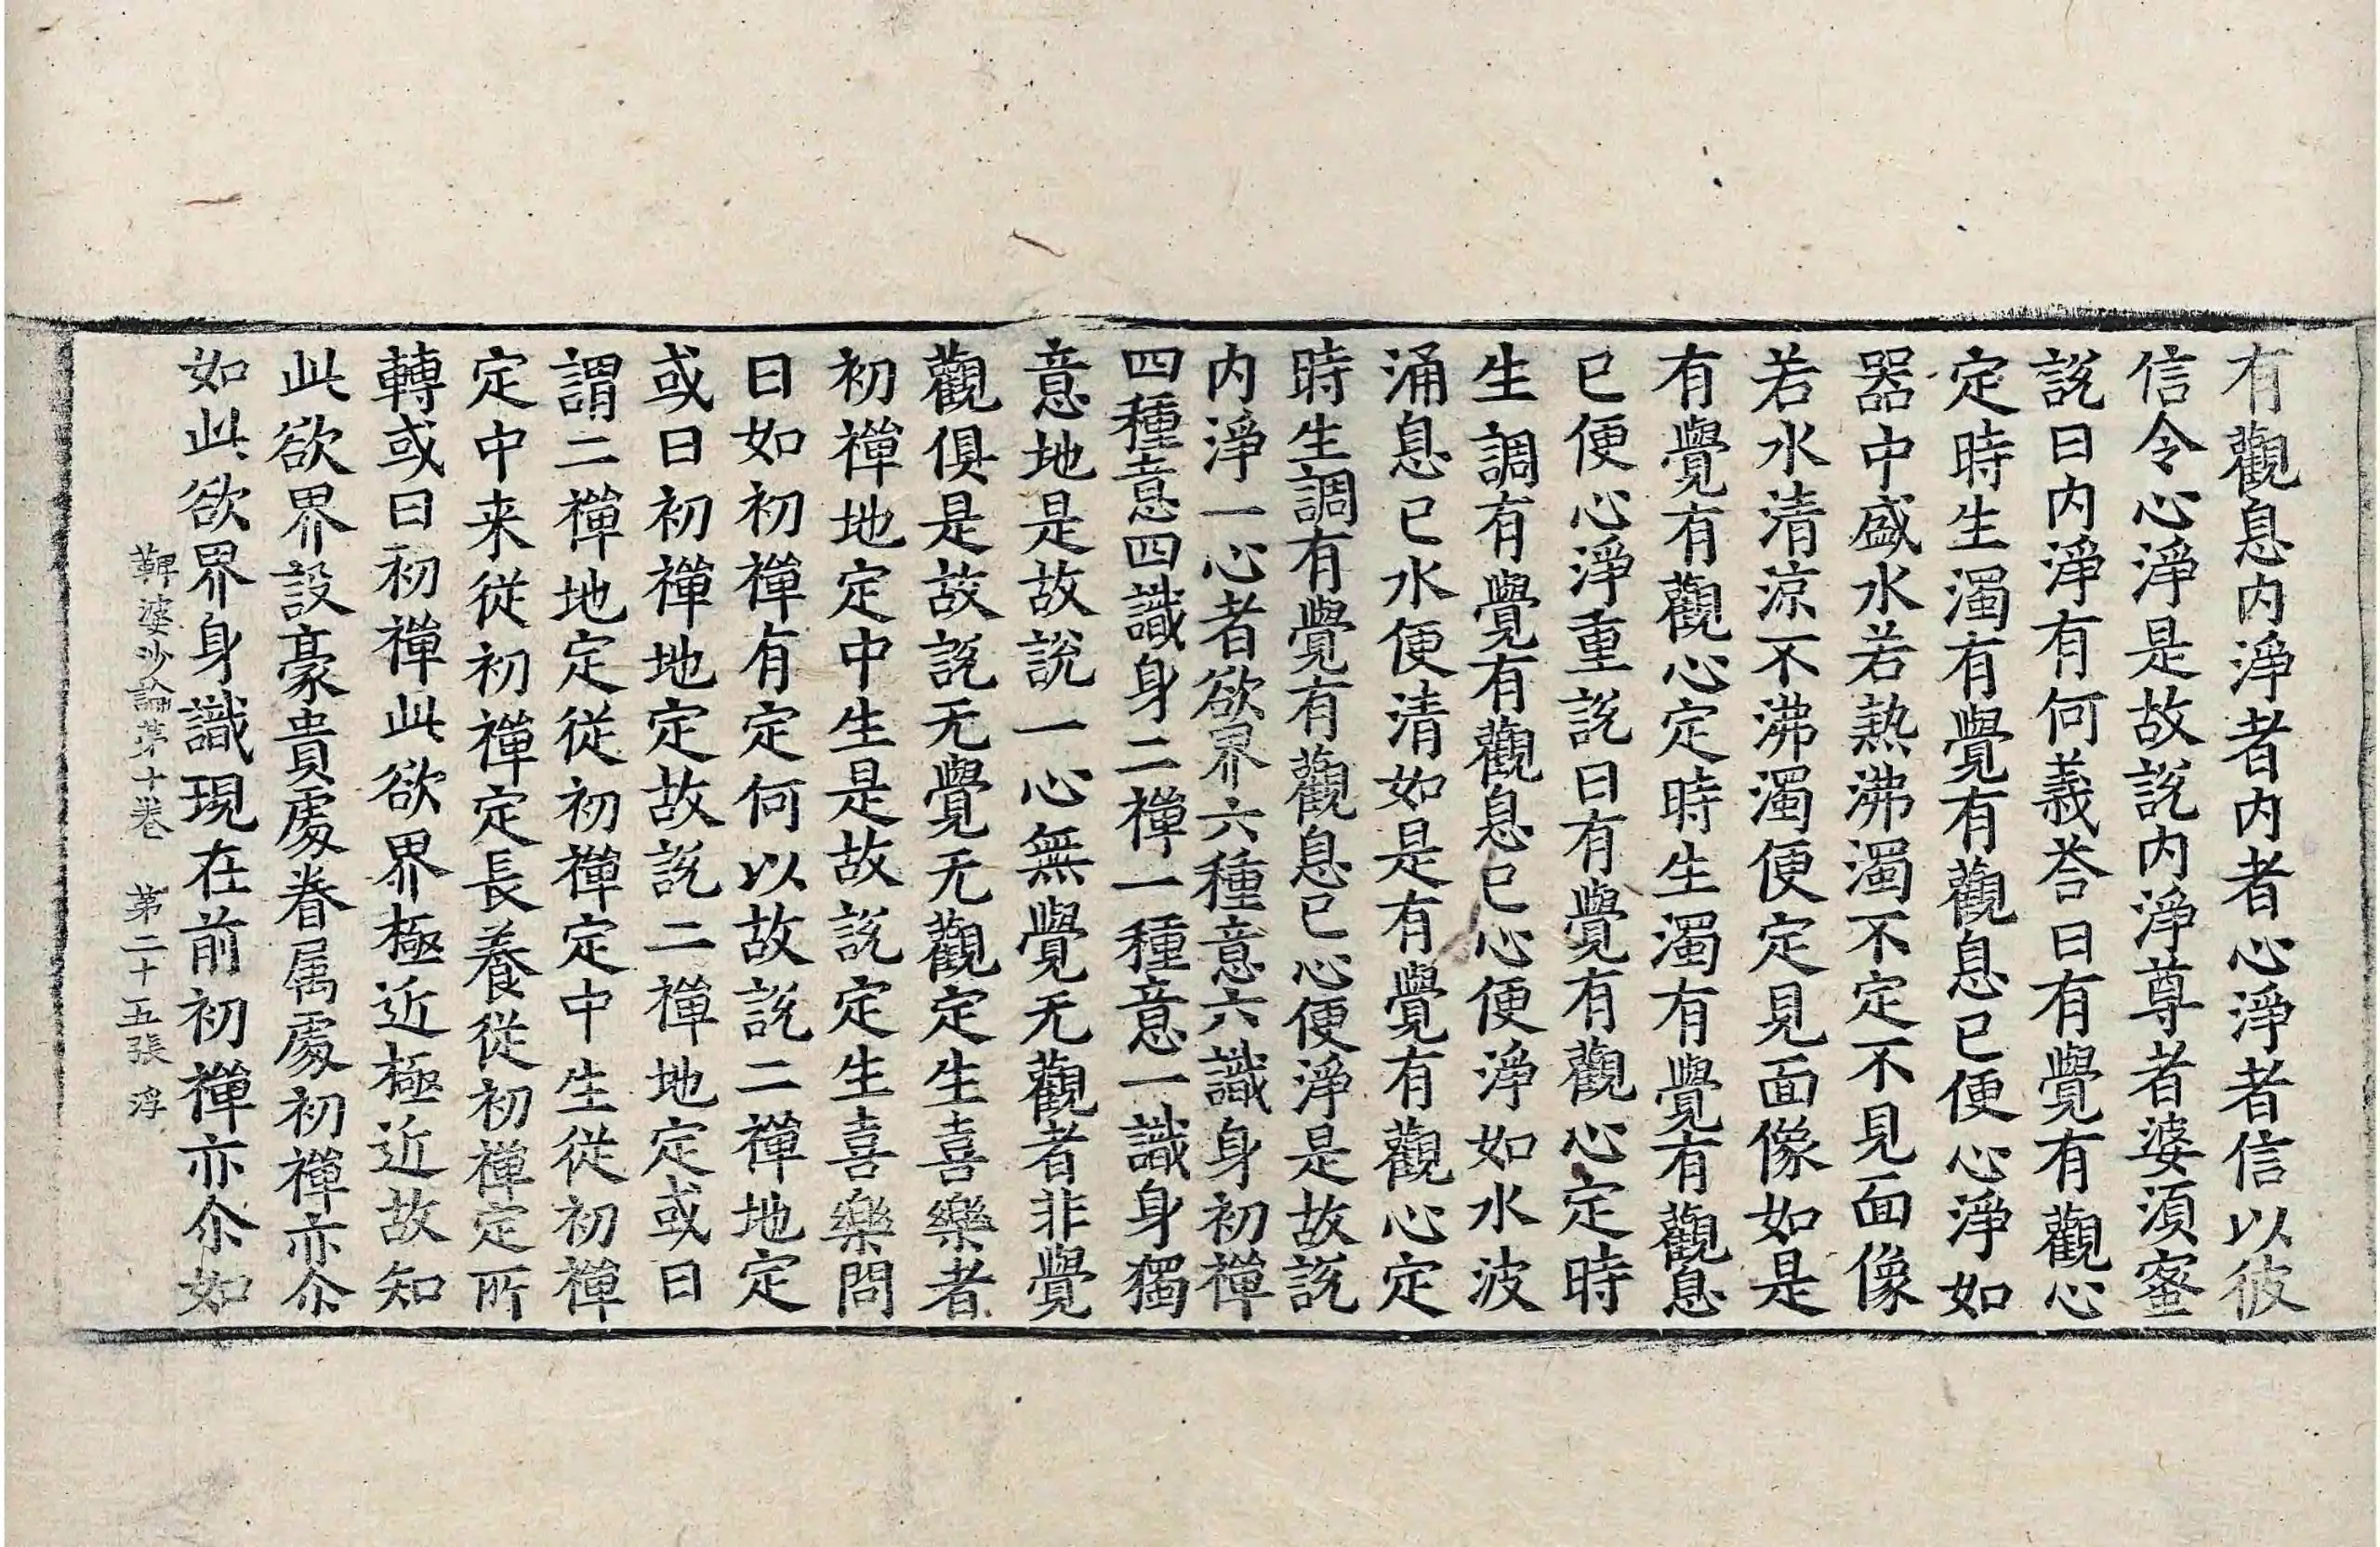 有觀息内淨者内者心淨者信以彼
信令心淨是故說内淨尊者婆須蜜
說曰内淨有何義荅曰有覺有觀心
定時生濁有覺有觀息已便心淨如
器中盛水若熱沸濁不定不見面像
若水清涼不沸濁便定見面像如是
有覺有觀心定時生濁有覺有觀息
已便心淨重說曰有覺有觀心定時
生調有覺有觀息已心便淨如水波
涌息已水便清如是有覺有觀心定
時生調有覺有觀息已心便淨是故說
内淨一心者欲界六種意六識身初禪
四種意四識身二禪一種意一識身獨
意地是故說一心無覺无觀者非覺
觀俱是故說无覺无觀定生喜樂者
初禪地定中生是故說定生喜樂問
曰如初禪有定何以故說二禪地定
或曰初禪地定故說二禪地定或曰
謂二禪地定從初禪定中生從初禪
定中来從初禪定長養從初禪定所
轉或曰初禪此欲界極近極近故知
此欲界設豪貴處眷属處初禪亦尒
如此欲界身識現在前初禪亦尒如
鞞婆沙論第十卷 第二十五張 浮